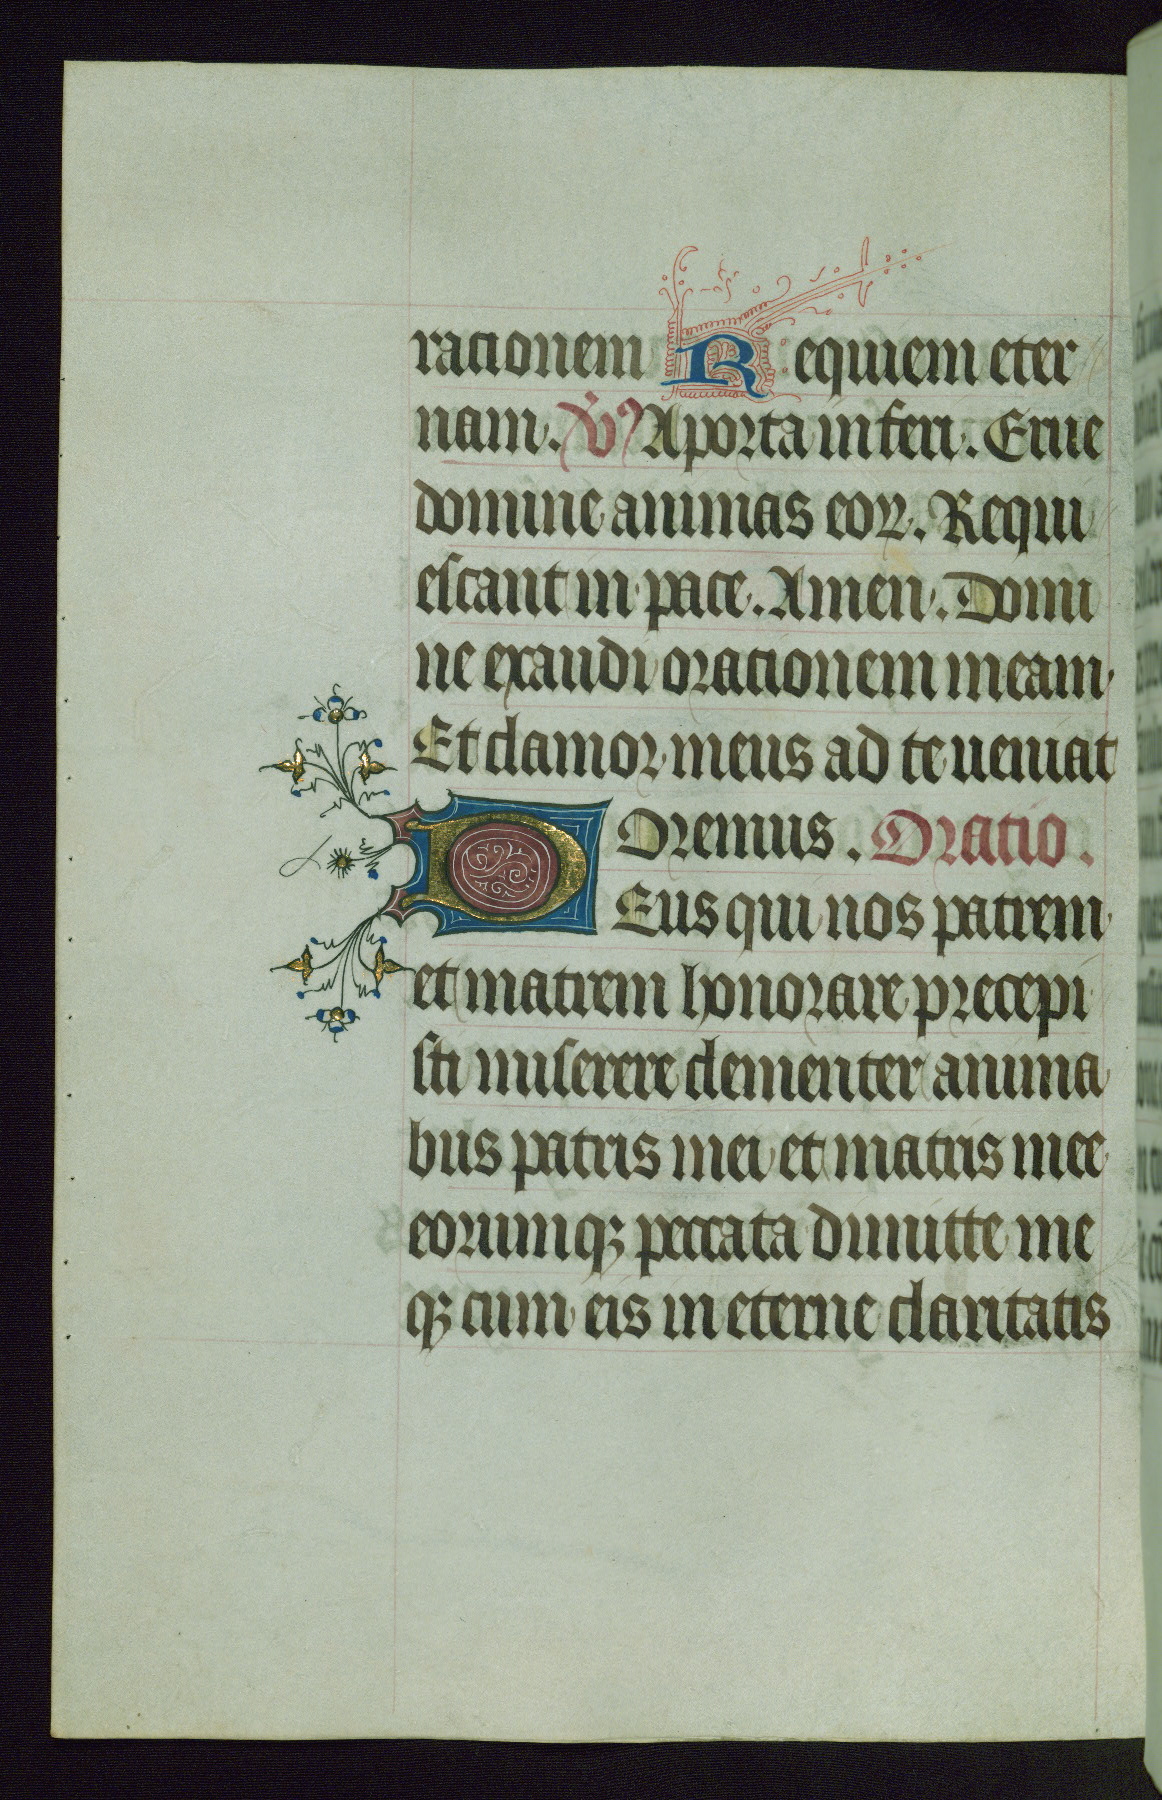 rationem Requiem eter
nam. V̇ A porta inferi. Erue
domine animas eoꝝ. Requi
escant in pace. Amen. Domi
ne exaudi orationem meam
Et clamor meus ad te ueniat
Oremus. Oratio.
DEus qui nos patrem
et matrem honorare precepi
sti miserere clementer anima
bus patris mei et matris mee
eorumqꝫ peccata dimitte me
qꝫ cum eis in eterne claritatis